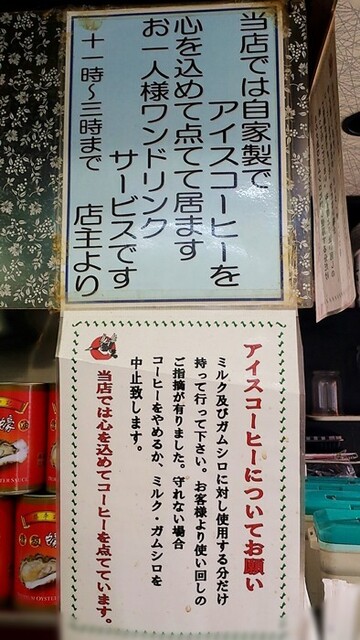 当店では自家製で
アイスコーヒーを
心を込めて点てて居ます
お一人様ワンドリンク
サービスです
十一時～三時まで　店主より
アイスコーヒーについてお願い
ミルク及びガムシロに対し使用する分だけ
持って行って下さい。お客様より使い回しの
ご指摘が有りました。守れない場合
コーヒーをやめるか、ミルク・ガムシロを
中止致します。
当店では心を込めてコーヒーを点てています。